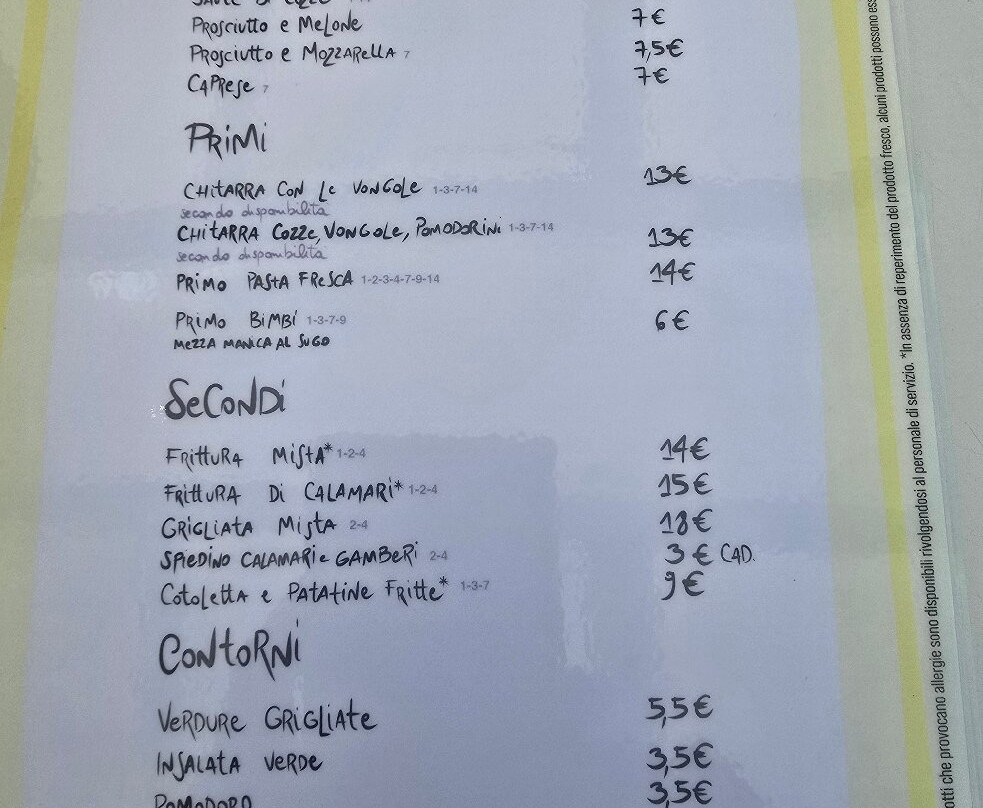 Prosciutto e Melone 7€
Prosciutto e Mozzarella 7 7,5€
Caprese 7 7€
Primi
Chitarra con le Vongole 1-3-7-14 13€
secondo disponibilità
Chitarra Cozze, Vongole, Pomodorini 1-3-7-14 13€
secondo disponibilità
Primo Pasta Fresca 1-2-3-4-7-9-14 14€
Primo Bimbi 1-3-7-9 6€
Mezza Manica al Sugo
Secondi
Frittura Mista* 1-2-4 14€
Frittura di Calamari* 1-2-4 15€
Grigliata Mista 2-4 18€
Spiedino Calamari e Gamberi 2-4 3€ CAD.
Cotoletta e Patatine Fritte* 1-3-7 9€
Contorni
Verdure Grigliate 5,5€
Insalata Verde 3,5€
Pomodoro 3,5€
otti che provocano allergie sono disponibili rivolgendosi al personale di servizio. *In assenza di reperimento del prodotto fresco, alcuni prodotti possono ess